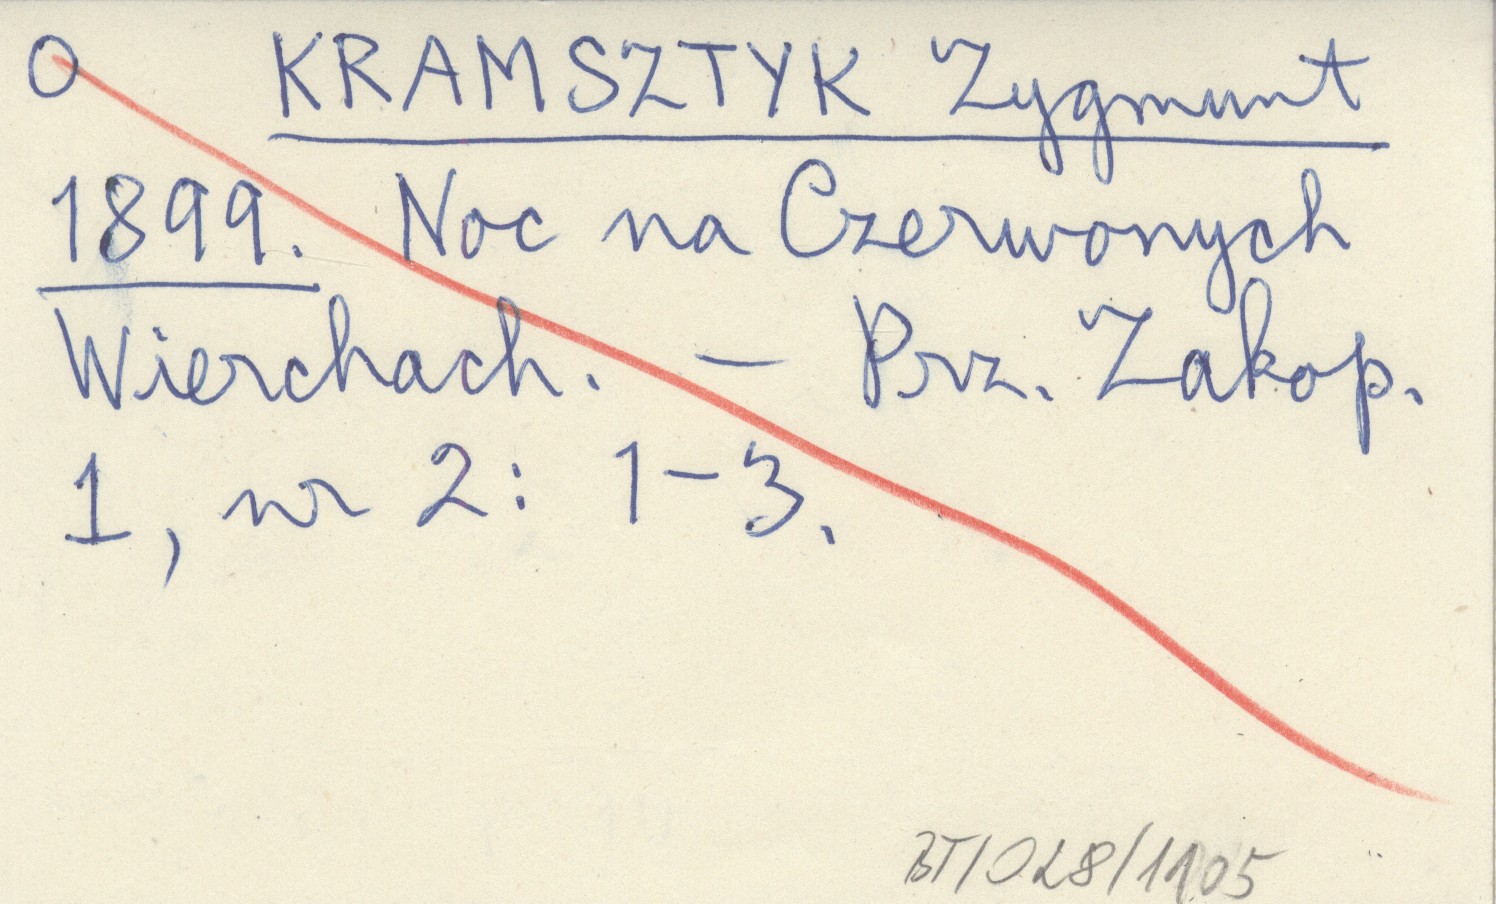 O KRAMSZTYK Zygmunt
1899. Noc na Czerwonych
Wierchach. – Prz. Zakop.
1, nr 2: 1–3.
BT/028/1105